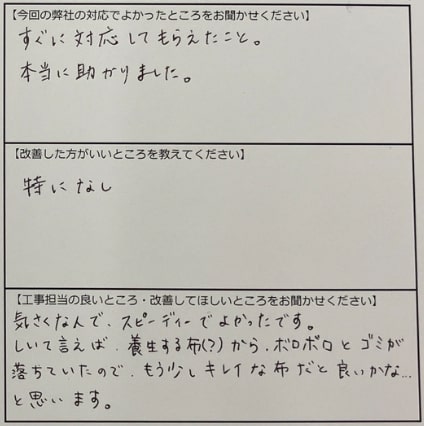 【今回の弊社の対応でよかったところをお聞かせください】
すぐに対応してもらえたこと。
本当に助かりました。
【改善した方がいいところを教えてください】
特になし
【工事担当の良いところ・改善してほしいところをお聞かせください】
気さくな人で、スピーディーでよかったです。
しいて言えば、養生する布(?)から、ボロボロとゴミが
落ちていたので、もう少しキレイな布だと良いかな…
と思います。